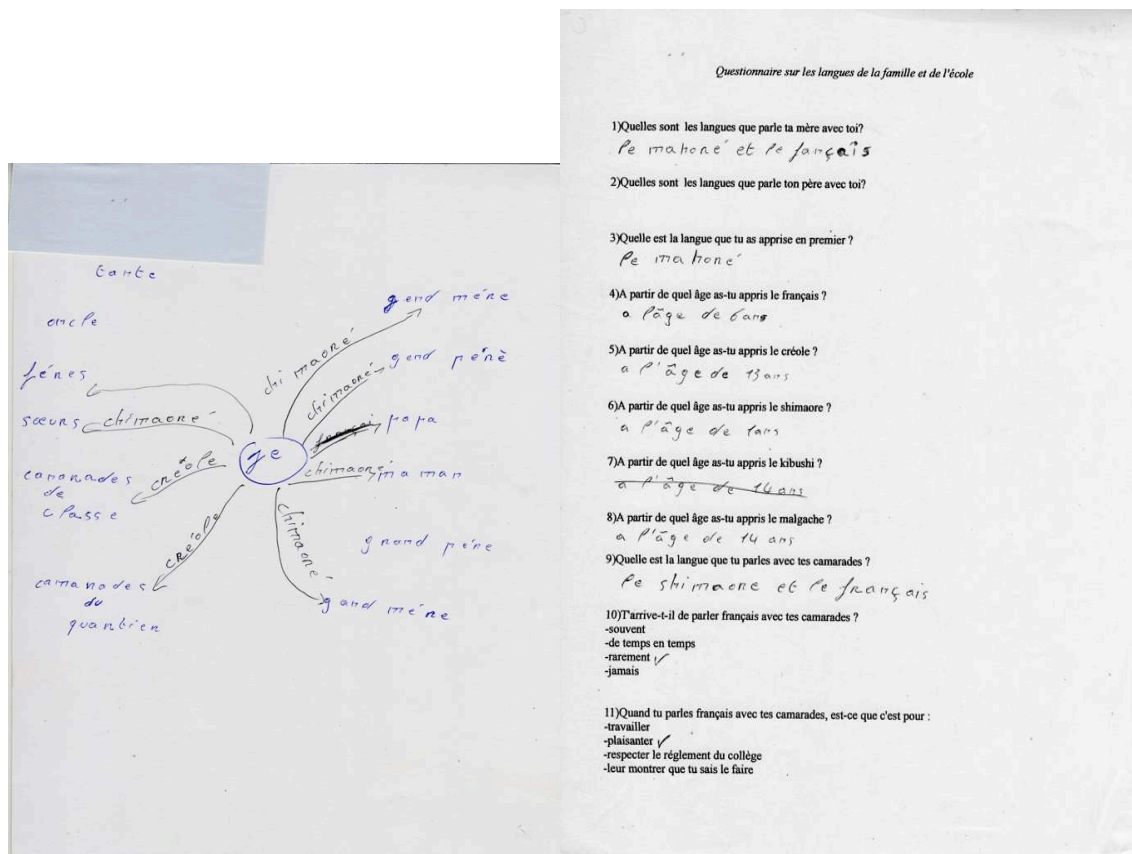 tante
oncle
fénes
sœurs
camanades
de
classe
camanades
du
quantien
je
chimaoré
créole
créole
chi maoré
gend méne
chimaoré
gend pénè
papa
chimaoré
maman
gnand péne
chimaoré
gand méne
Questionnaire sur les langues de la famille et de l'école
1)Quelles sont les langues que parle ta mère avec toi?
le mahoné et le fançaîs
2)Quelles sont les langues que parle ton père avec toi?
3)Quelle est la langue que tu as apprise en premier ?
le mahoné
4)A partir de quel âge as-tu appris le français ?
a l'âge de 6ans
5)A partir de quel âge as-tu appris le créole ?
a l'âge de 13 ans
6)A partir de quel âge as-tu appris le shimaore ?
a l'âge de 1ans
7)A partir de quel âge as-tu appris le kibushi ?
a l'âge de 14 ans
8)A partir de quel âge as-tu appris le malgache ?
a l'âge de 14 ans
9)Quelle est la langue que tu parles avec tes camarades ?
le shimaone et le français
10)T'arrive-t-il de parler français avec tes camarades ?
-souvent
-de temps en temps
-rarement ✓
-jamais
11)Quand tu parles français avec tes camarades, est-ce que c'est pour :
-travailler
-plaisanter ✓
-respecter le réglement du collège
-leur montrer que tu sais le faire